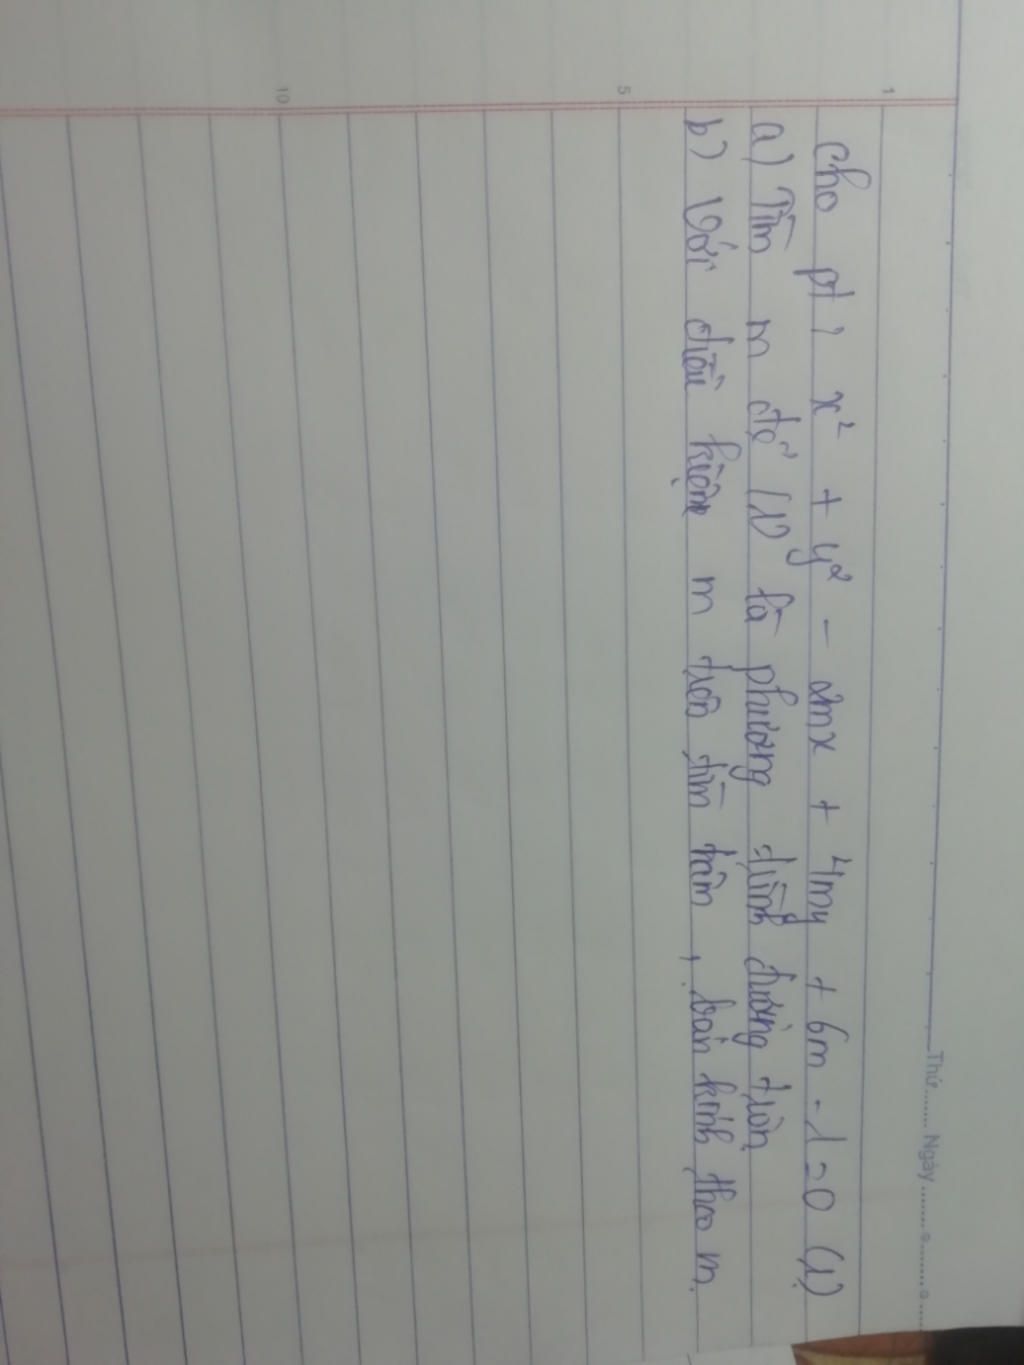 Thứ........ Ngày ........
1
cho pt : x² + y² - 2mx + 4my + 6m - 1 = 0 (1)
a) Tìm m để (1) là phương trình đường tròn
b) Với điều kiện m trên tìm tâm , bán kính theo m.
5
10